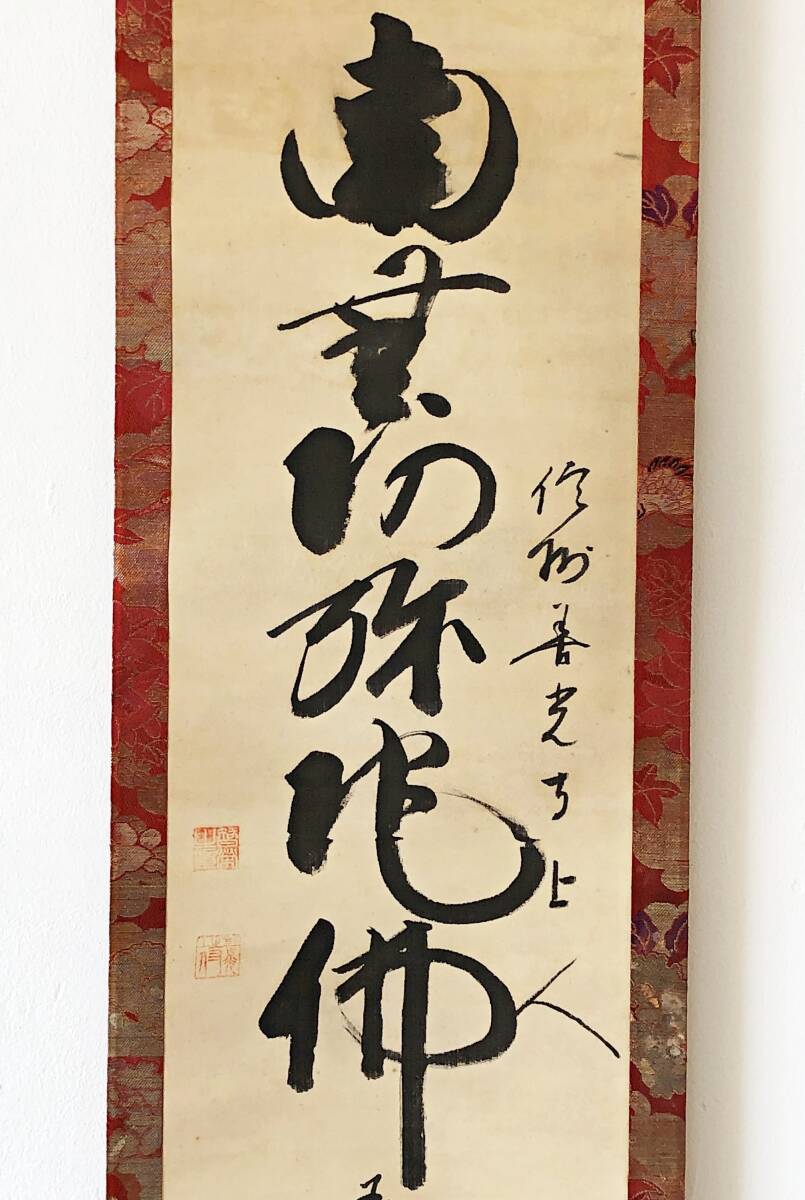 信州善光寺上人
南無阿弥陀佛